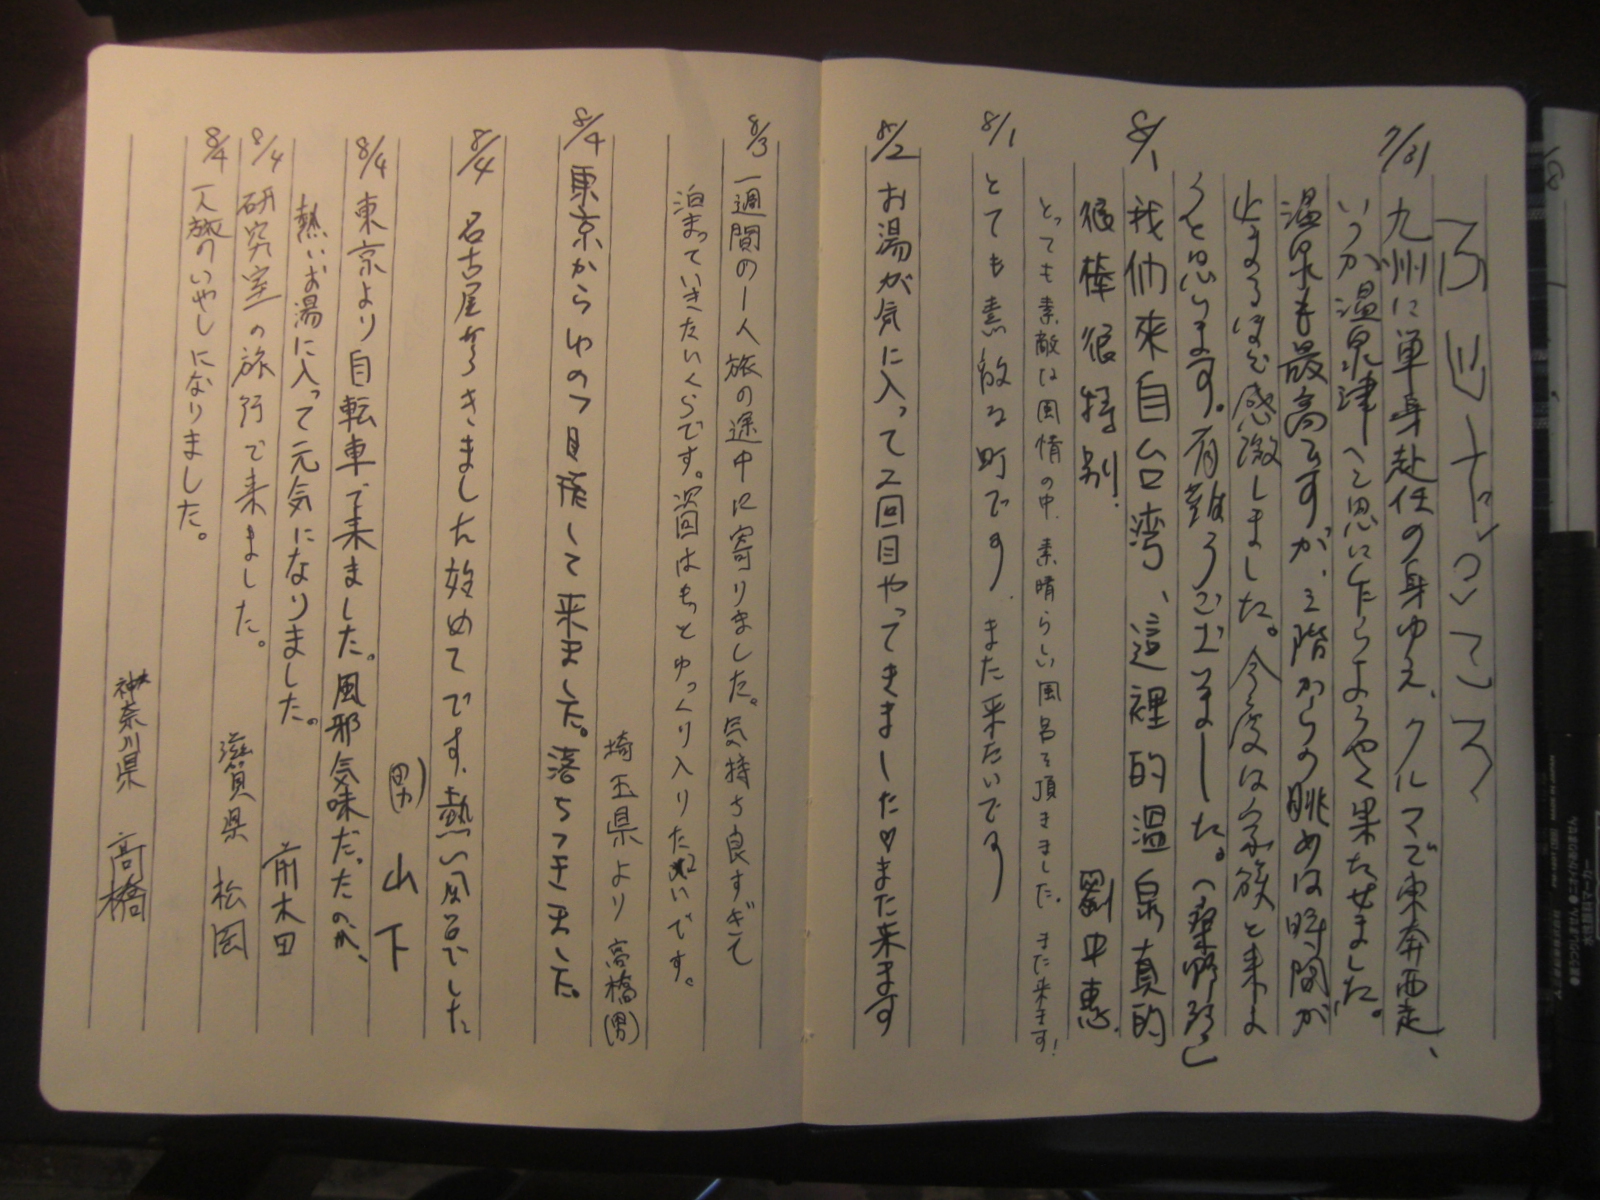 7/31 九州に単身赴任の身ゆえ、クルマで東奔西走、
いつか温泉津へと思いにたらようやく果たせました。
温泉も最高ですが、3階からの眺めは時間が
止まるほど感激しました。今度は家族と来よ
うと思います。有難うございました。
8/1 我们來自台湾、這裡的溫泉真的
很棒很特别! 劉
とっても素敵な風情の中、素晴らしい風呂を頂きました。また来ます!
8/1 とても素敵な町です。また来たいです
8/2 お湯が気に入って2回目やってきました♥また来ます
8/3 一週間の一人旅の途中に寄りました。気持ち良すぎて
泊まっていきたいくらです。次回はもっとゆっくり入りたいです。
埼玉県より 高橋(男)
8/4 東京からゆのつ目指して来ました。落ちつきました。
8/4 名古屋からきました始めてです。熱い風呂でした
(男) 山下
8/4 東京より自転車で来ました。風邪気味だったのが、
熱いお湯に入って元気になりました。
前木田
8/4 研究室の旅行で来ました。
滋賀県 松岡
8/4 一人旅のいやしになりました。
神奈川県 高橋